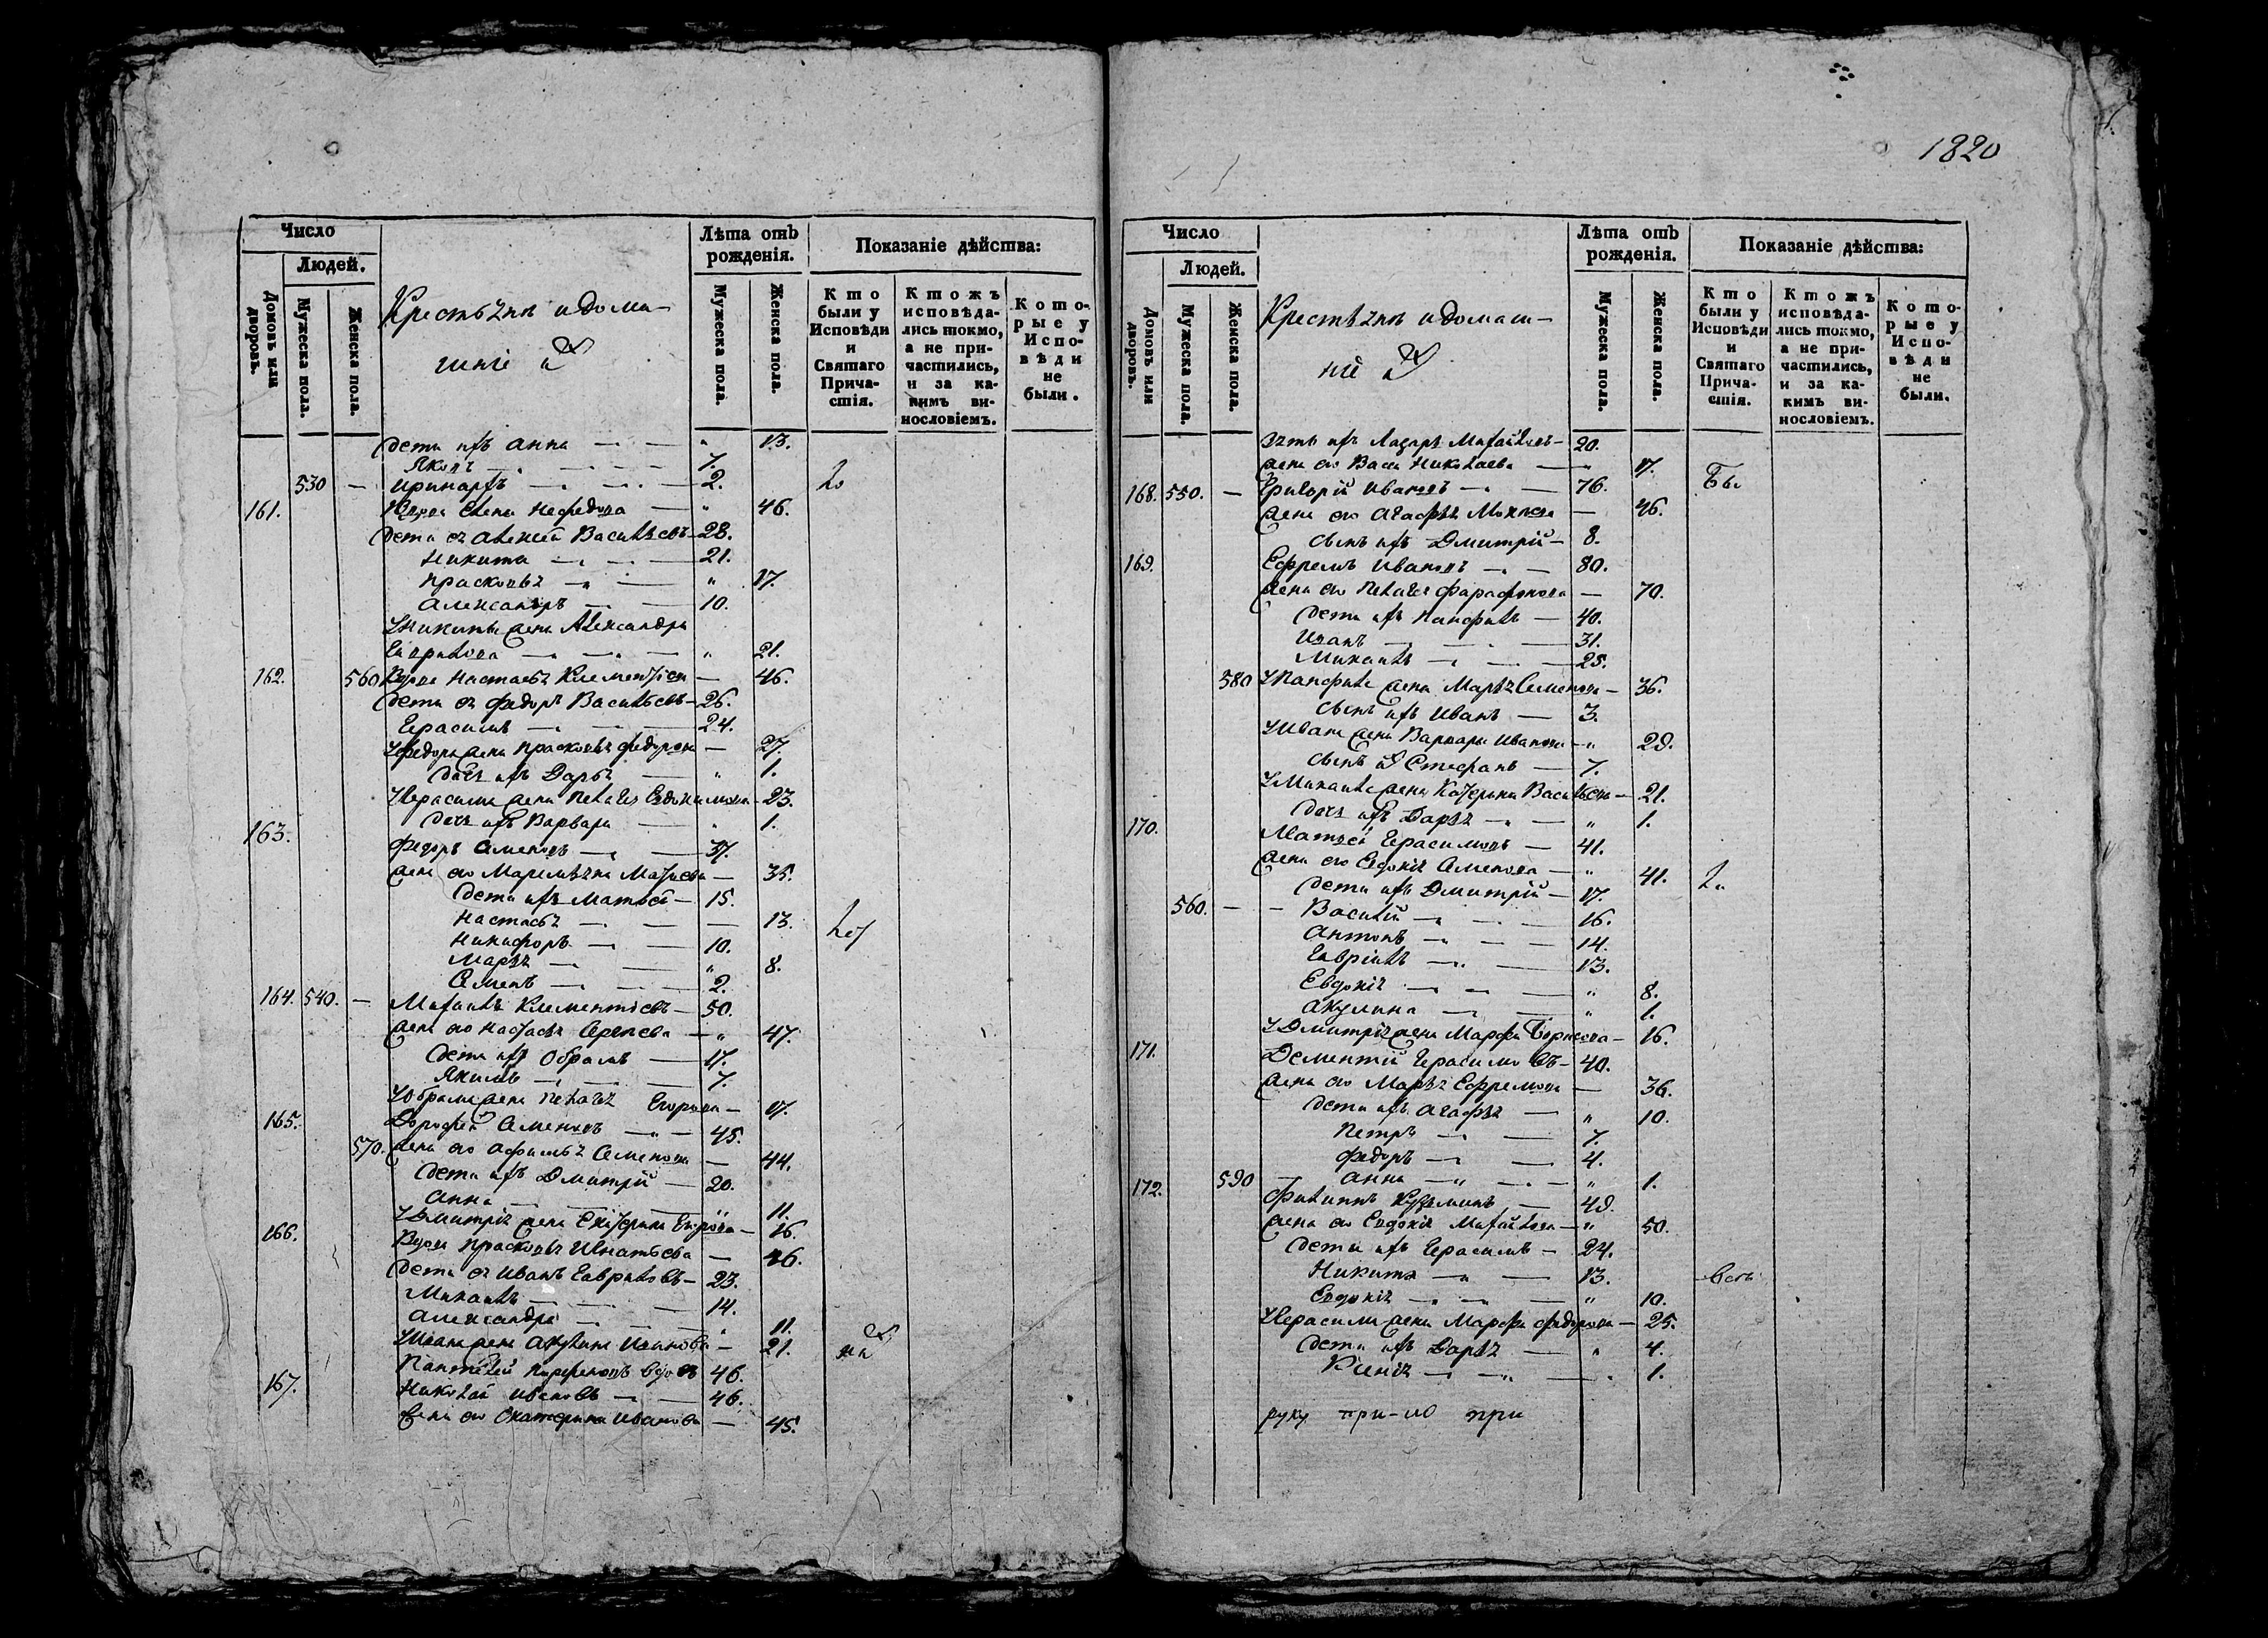 1820
Число
Людей.
Домовъ или дворовъ.
Мужеска пола.
Женска пола.
Крестьяне и дома-
шніе ихъ
Лѣта отъ рожденія.
Мужеска пола.
Женска пола.
Показаніе дѣйства:
Кто были у Исповѣди и Святаго Прича-стія.
Ктожъ исповѣда-лись токмо, а не при-частились, и за ка-кимъ ви-нословіемъ.
Кото-рые у Испо-вѣди не были.
Дети ихъ Анна 13.
Яковъ 7.
530 — Иринархъ 2.
161. Вдова Елена Нефедова 46.
Дети ея Алексей Васильевъ 28.
Никита 21.
Прасковья 17.
Александръ 10.
У Никиты жена Александра
Гаврилова 21.
162. 560 Вдова Настасья Клементіева 46.
Дети ея Федоръ Васильевъ 26.
Герасимъ 24.
У Федора жена Прасковья Федорова 27.
Дочь ихъ Дарья 1.
У Герасима жена Пелагея Евдокимова 23.
Дочь ихъ Варвара 1.
163. Федоръ Семеновъ 37.
Жена его Маремьяна Матвеева 35.
Дети ихъ Матвей 15.
Настасья 13.
Никифоръ 10.
Марья 8.
Семенъ 2.
164. 540. — Михаилъ Клементіевъ 50.
Жена его Настасья Сергеева 47.
Дети ихъ Обрамъ 17.
Якимъ 7.
У Обрама жена Пелагея Егорова 17.
165. Дорофей Семеновъ 45.
570. Жена его Афимья Семенова 44.
Дети ихъ Дмитрій 20.
Анна 11.
У Дмитрія жена Екатерина Егорова 16.
166. Вдова Прасковья Игнатьева 46.
Дети ея Иванъ Гавриловъ 23.
Михаилъ 14.
Александра 11.
У Ивана жена Акулина Иванова 21.
Пантелей Парфеновъ вдовъ 46.
167. Николай Ивановъ 46.
Жена его Екатерина Иванова 45.
Число
Людей.
Домовъ или дворовъ.
Мужеска пола.
Женска пола.
Крестьяне и домаш-
ніе ихъ
Лѣта отъ рожденія.
Мужеска пола.
Женска пола.
Показаніе дѣйства:
Кто были у Исповѣди и Святаго Прича-стія.
Ктожъ исповѣда-лись токмо, а не при-частились, и за ка-кимъ ви-нословіемъ.
Кото-рые у Испо-вѣди не были.
Зять ихъ Лазарь Михайловъ 20.
Жена его Васа Николаева 17.
168. 550. — Григорій Ивановъ 76.
Жена его Агафья 46.
Сынъ ихъ Дмитрій 8.
169. Ефремъ Ивановъ 80.
Жена его Пелагея Фарафонова 70.
Дети ихъ Панфилъ 40.
Иванъ 31.
Михаилъ 25.
580 У Панфила жена Марья Семенова 36.
Сынъ ихъ Иванъ 3.
У Ивана жена Варвара Иванова 29.
Сынъ ихъ Стефанъ 7.
У Михаила жена Катерина Васильева 21.
Дочь ихъ Дарья 1.
170. Матвей Герасимовъ 41.
Жена его Евдокія Семенова 41.
Дети ихъ Дмитрій 17.
560. — — Василій 16.
Антонъ 14.
Гавріилъ 13.
Евдокія 8.
Акулина 1.
У Дмитрія жена Марфа Борисова 16.
171. Дементій Герасимовъ 40.
Жена его Марья Ефремова 36.
Дети ихъ Агафья 10.
Петръ 7.
Федоръ 4.
590 — Анна 1.
172. Филиппъ Кузьминъ 49.
Жена его Евдокія Михайлова 50.
Дети ихъ Герасимъ 24.
Никита 13.
Евдокія 10.
У Герасима жена Марфа Федорова 25.
Дети ихъ Дарья 4.
Ксенія 1.
руку при